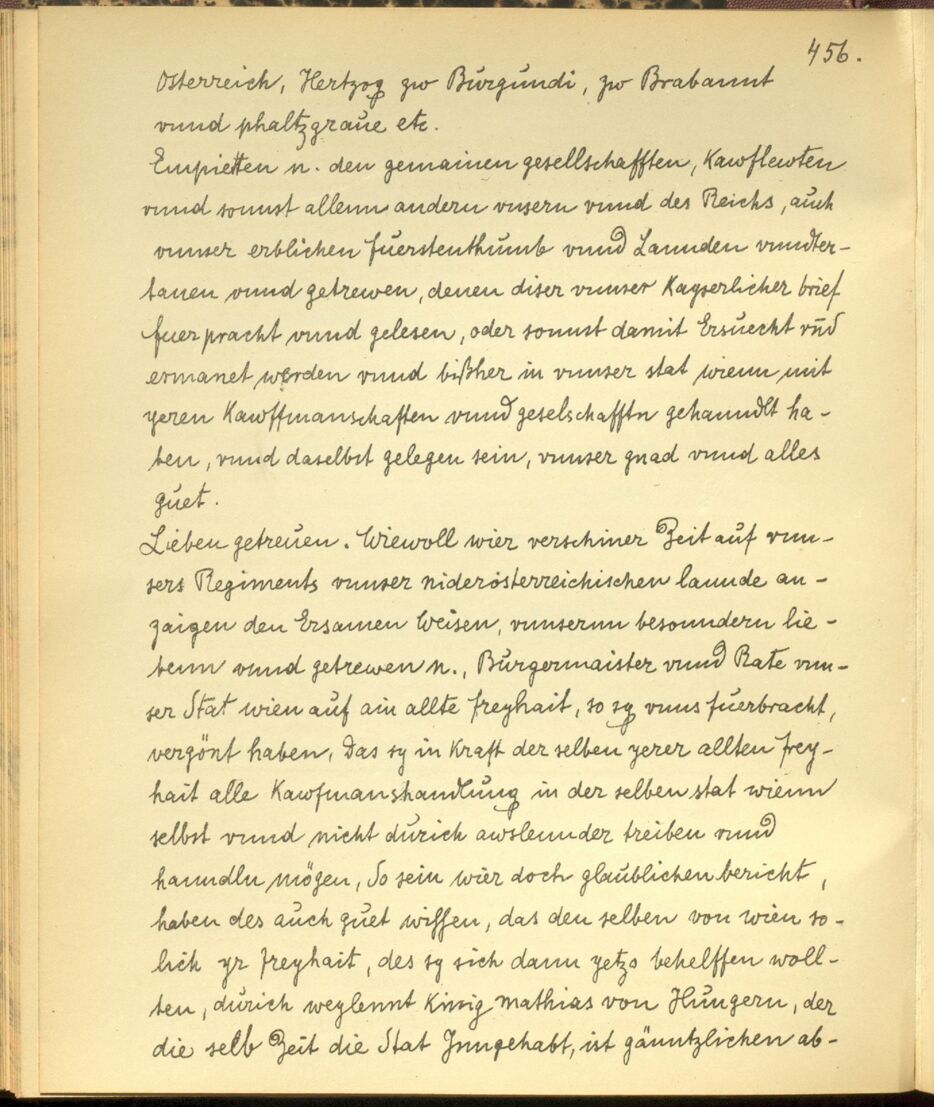 456.
Osterreich, Hertzog zw Burgundi, zw Brabannt
vnnd phaltzgraue etc.
Empietten n. den gemainen gesellschafften, Kawflewten
vnnd sonnst allenn andern vnsern vnnd des Reichs, auch
vnnser erblichen fuerstenthumb vnnd Lannden vnndter-
tanen vnnd getrewen, denen diser vnnser Kayserlicher brief
fuerpracht vnnd gelesen, oder sonnst damit Ersuecht vn̄d
ermanet werden vnnd bißher in vnnser stat wienn mit
yeren Kawffmanschaften vnnd geselschafftn gehanndlt ha-
ben, vnnd daselbst gelegen sein, vnnser gnad vnnd alles
guet.
Lieben getreuen. Wiewoll wier verschiner Zeit auf vnn-
sers Regiments vnnser niderösterreichischen lannde an-
zaigen den Ersamen Weisen, vnnsernn besonndern lie-
benn vnnd getrewen n., Burgermaister vnnd Rate vnn-
ser Stat wien auf ain allte freyhait, so sy vnns fuerbracht,
vergönt haben, Das sy in Kraft der selben yerer allten frey-
hait alle Kawfmanshandlung in der selben stat wienn
selbst vnnd nicht durich awslennder treiben vnnd
hanndln mögen, So sein wier doch glaublichen bericht,
haben des auch guet wissen, das den selben von wien so-
lich yr freyhait, des sy sich dann yetzo behelffen woll-
ten, durich weylennt Kinig Mathias von Hungern, der
die selb Zeit die Stat Inngehabt, ist gänntzlichen ab-